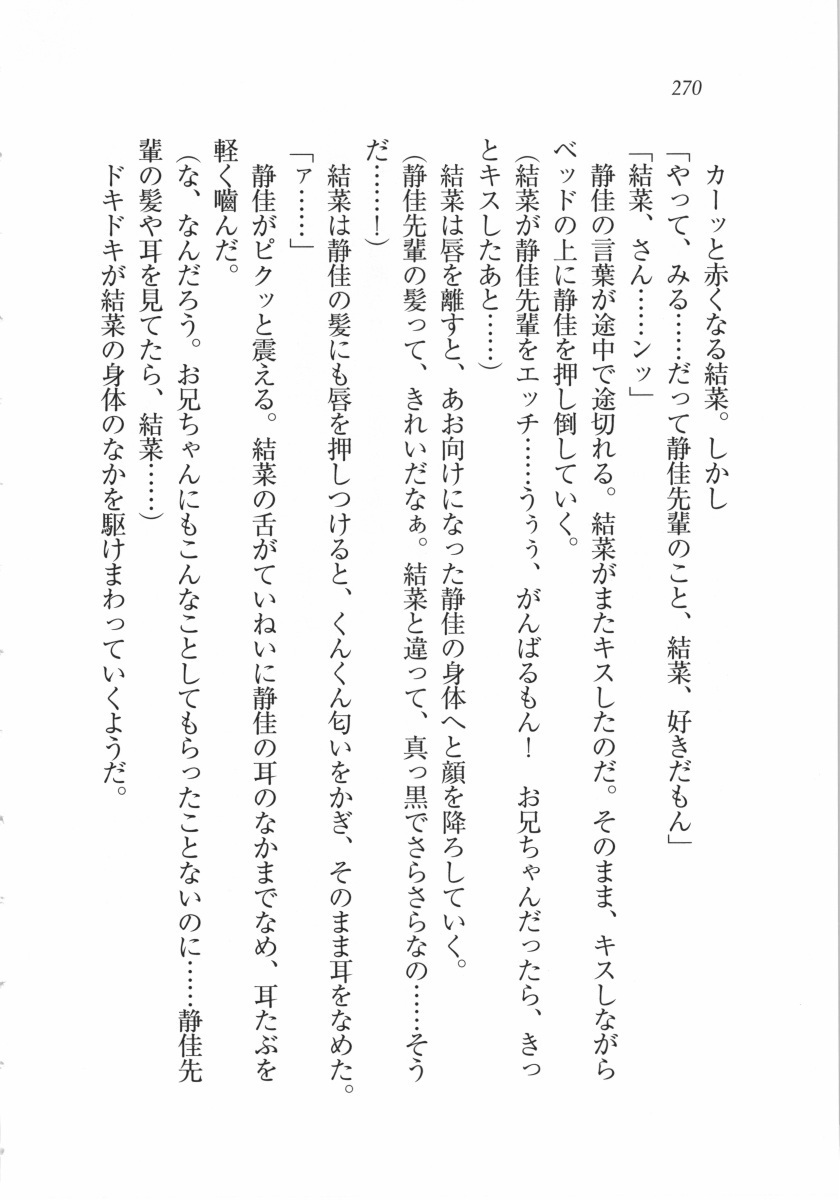 270
カーッと赤くなる結菜。しかし
「やって、みる……だって静佳先輩のこと、結菜、好きだもん」
「結菜、さん……ンッ」
静佳の言葉が途中で途切れる。結菜がまたキスしたのだ。そのまま、キスしながら
ベッドの上に静佳を押し倒していく。
(結菜が静佳先輩をエッチ……うぅぅ、がんばるもん！　お兄ちゃんだったら、きっ
とキスしたあと……)
結菜は唇を離すと、あお向けになった静佳の身体へと顔を降ろしていく。
(静佳先輩の髪って、きれいだなぁ。結菜と違って、真っ黒でさらさらなの……そう
だ……！)
結菜は静佳の髪にも唇を押しつけると、くんくん匂いをかぎ、そのまま耳をなめた。
「ァ……」
静佳がピクッと震える。結菜の舌がていねいに静佳の耳のなかまでなめ、耳たぶを
軽く嚙んだ。
(な、なんだろう。お兄ちゃんにもこんなことしてもらったことないのに……静佳先
輩の髪や耳を見てたら、結菜……)
ドキドキが結菜の身体のなかを駆けまわっていくようだ。